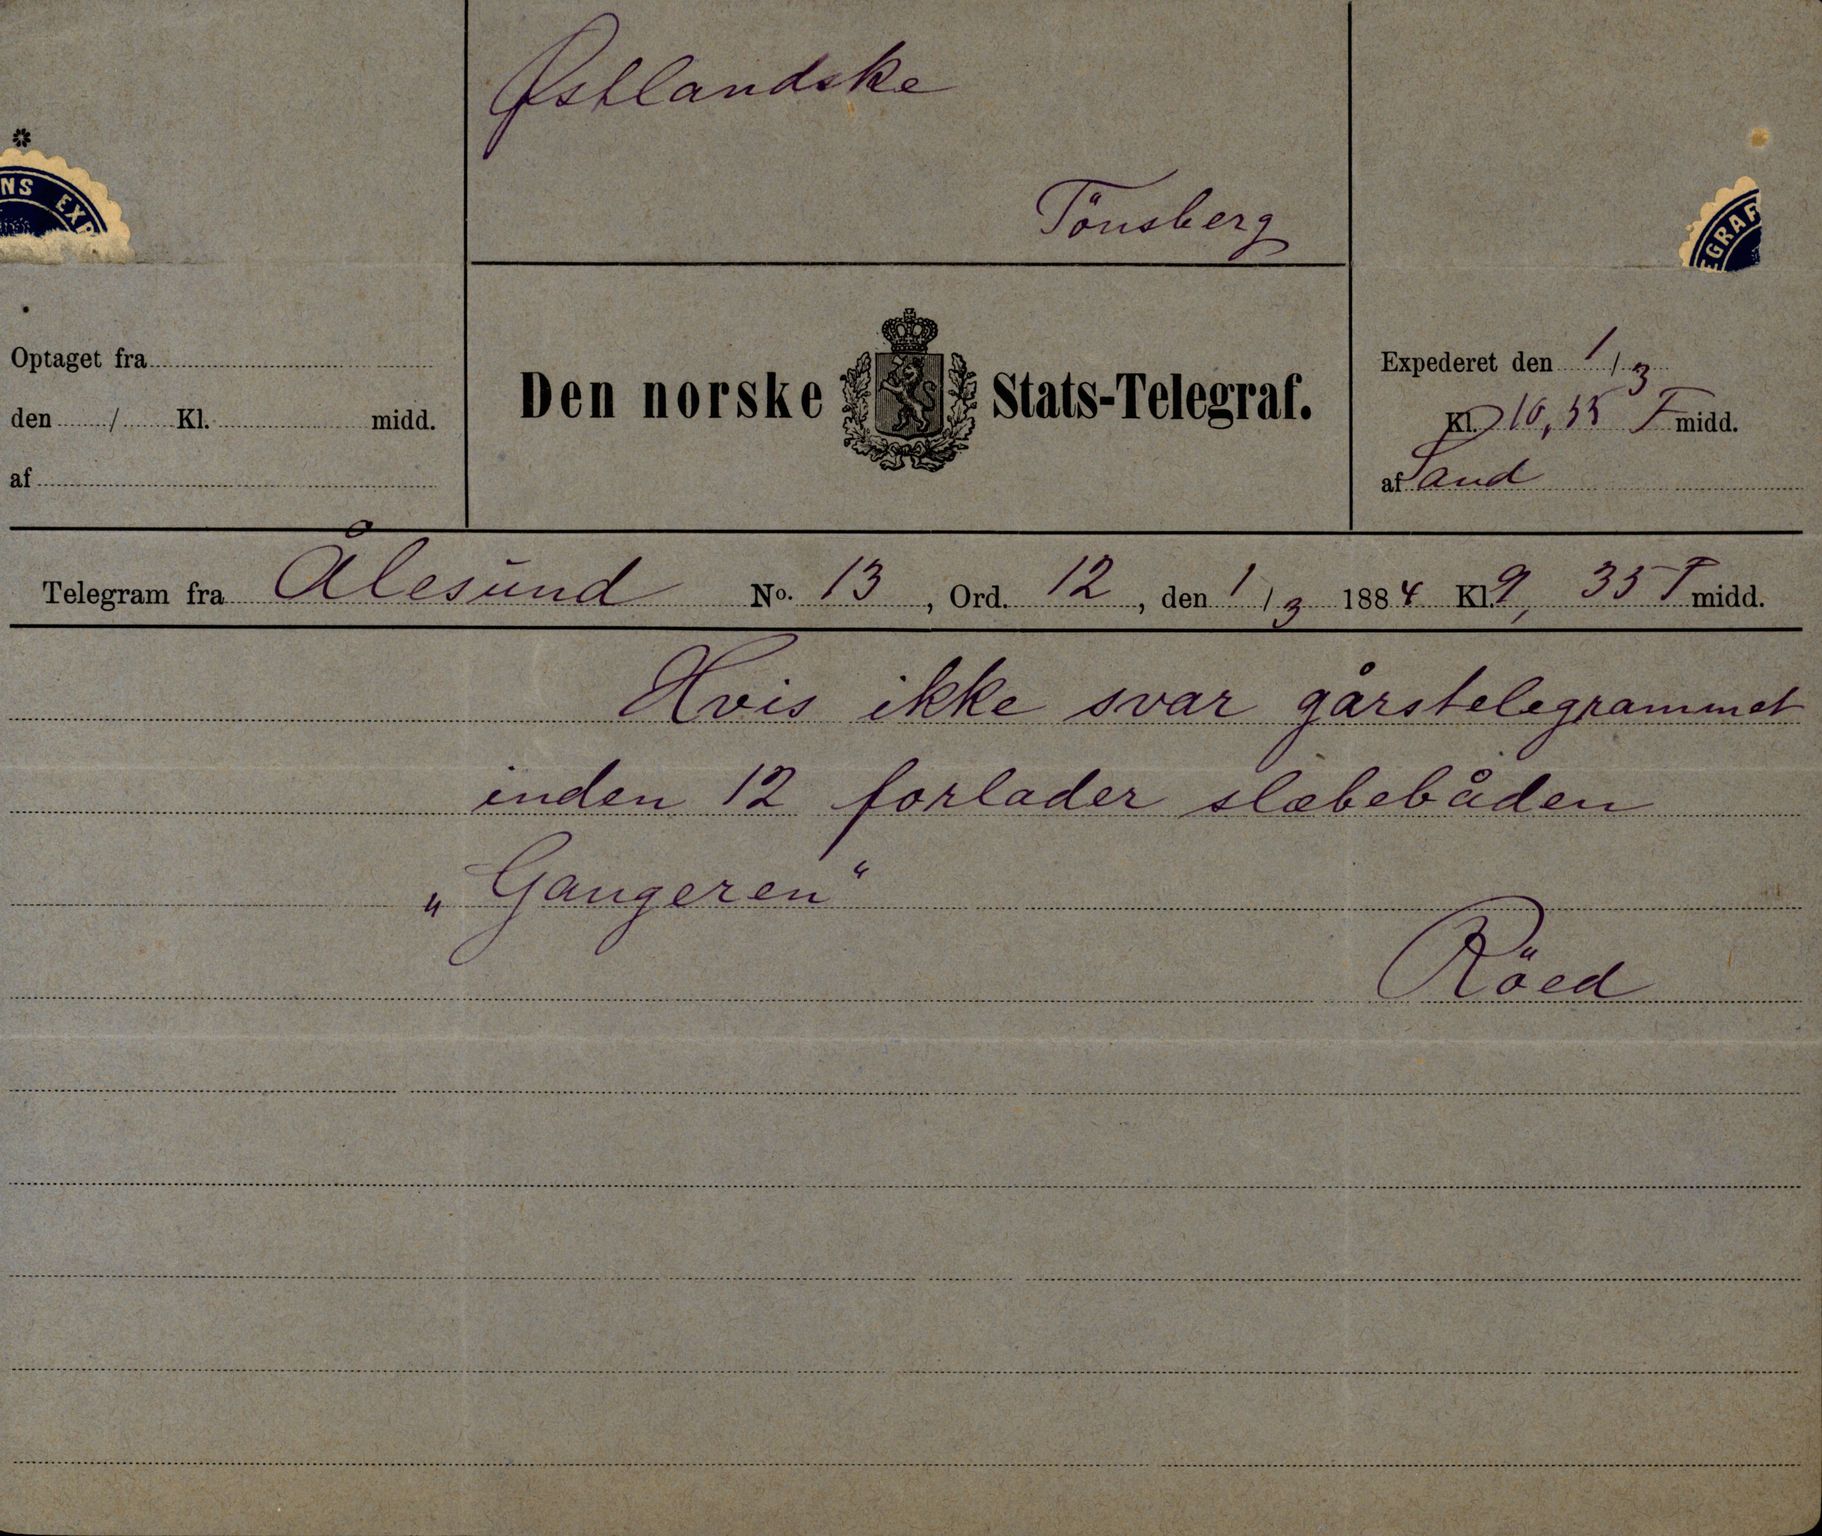 Østlandske
Tönsberg
*
NS EXP
EGRAF
Optaget fra
den / Kl. midd.
af
Den norske Stats-Telegraf.
Expederet den 1/3
Kl. 10,55 F midd.
af Sand
Telegram fra Ålesund No. 13, Ord. 12, den 1/3 1884 Kl. 9, 35 F midd.
Hvis ikke svar gårstelegrammet
inden 12 forlader slæbebåden
„Gangeren“
Röed